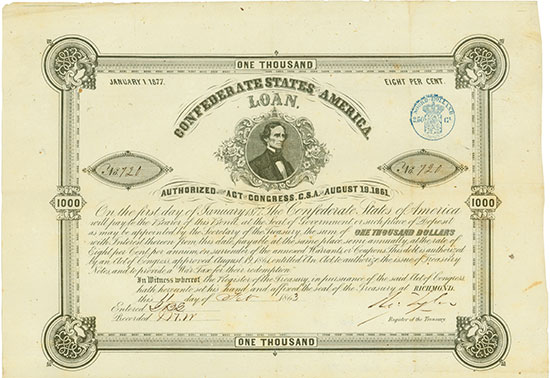 ONE THOUSAND
JANUARY 1 1877.
EIGHT PER CENT.
CONFEDERATE STATES OF AMERICA.
LOAN.
No 720
No 720
AUTHORIZED BY ACT OF CONGRESS, C.S.A. OF AUGUST 19.1861.
1000
1000
On the first day of January 1877. The Confederate States of America
will pay to the Bearer of this Bond, at the seat of Government, or at such place of Deposit
as may be appointed by the Secretary of the Treasury, the sum of ONE THOUSAND DOLLARS
with Interest thereon from this date, payable at the same place, semi annually, at the rate of
Eight per Cent per annum, on surrender of the annexed Warrants or Coupons. This debt is authorized
by an Act of Congress approved August 19, 1861, entitled An Act to authorize the issue of Treasury
Notes, and to provide a War Tax for their redemption.
In Witness whereof, the Register of the Treasury, in pursuance of the said Act of Congress,
hath hereunto set his hand and affixed the seal of the Treasury at RICHMOND.
this day of 1863
Entered
Recorded
Register of the Treasury.
ONE THOUSAND